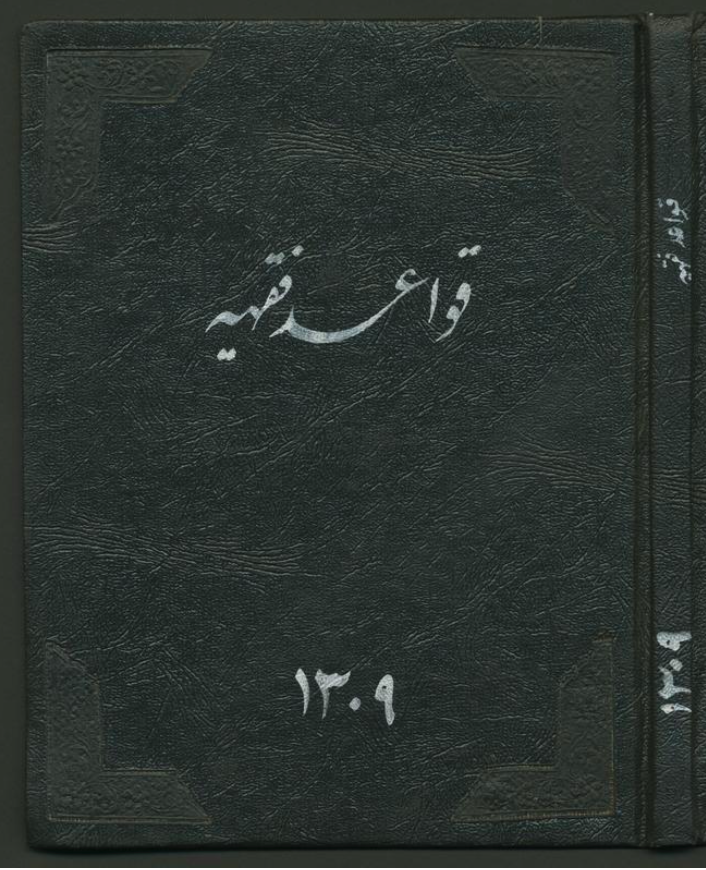 قواعد فقهیه
۱۳۰۹
قواعد فقهیه
۱۳۰۹